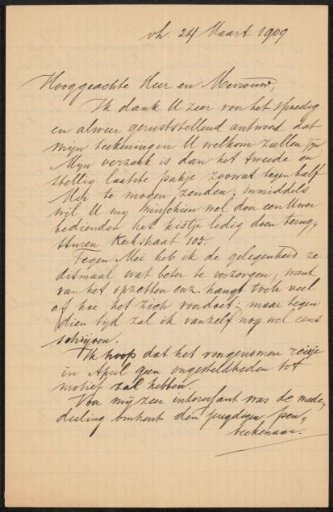 vh 24 Maart 1909
Hooggeachte Heer en Mevrouw,
Ik dank U zeer voor het spoedig
en alweer geruststellend antwoord dat
mijn teekeningen U welkom zullen zijn
Mijn verzoek is dan het tweede en
stellig laatste pakje zoowat tegen half
Mei te mogen zenden; inmiddels
wil U mij misschien wel door een Uwer
bedienden het kistje ledig doen terug-
sturen Kerkstraat 105.
Tegen Mei heb ik de gelegenheid ze
ditmaal wat beter te verzorgen, want
van het opzetten enz. hangt toch veel
af hoe het zich voordoet; maar tegen
dien tyd zal ik vanzelf nog wel eens
schrijven.
Ik hoop dat het voorgenomen reisje
in April geen ongesteldheden tot
motief zal hebben.
Voor mij zeer interessant was de mede-
deeling omtrent den jeugdigen pen-
teekenaar.